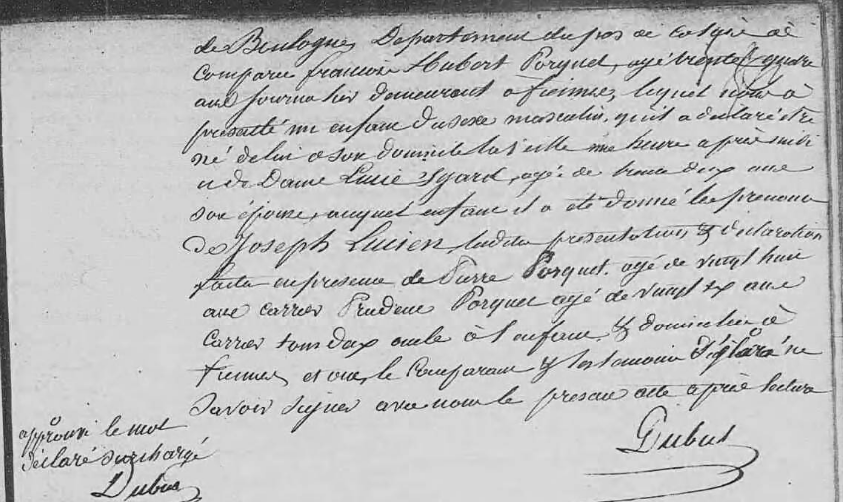 de Boulogne, Departement du pas de Calais a
Comparu francois Hubert Porquet, agé trente quatre
ans journalier demeurant a fiennes, lequel nous a
presenté un enfant du sexe masculin, qu'il a declaré etre
né de lui a son domicile la veille une heure apres midi
et de Dame Lucie Syard, agée de trente deux ans
son épouse, auquel enfant il a été donné les prenoms
de Joseph Lucien, ladite presentation & declaration
faite en presence de Pierre Porquet agé de vingt huit
ans carrier Prudent Porquet agé de vingt six ans
carrier tous deux oncle à l'enfant & domicilies à
fiennes et ont, le Comparant & les temoins déclaré ne
Savoir signer avec nous le present acte après lecture
Dubus
approuvé le mot
déclaré surchargé
Dubus